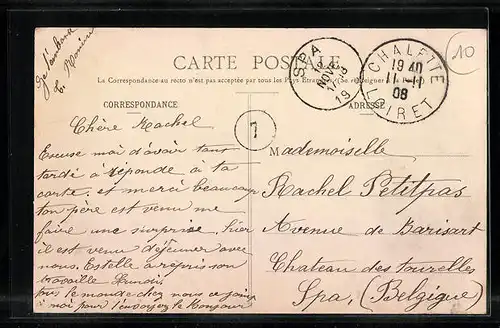 CARTE POSTALE
La Correspondance au recto n'est pas acceptée par tous les Pays Etrangers (Se renseigner à la Poste)
CORRESPONDANCE
ADRESSE
SPA
NOV
19
CHALETTE
19 40
11-11
08
LOIRET
10
7
Chère Rachel
Excuse moi d'avoir tant
tardé à réponde à ta
carte. et merci beaucoup
ton père est venu me
faire une surprise. hier
il est venu déjeuner avec
nous. Estelle a repris son
travaille Lundi
le monde chez nous ce joins
à moi pour t'envoyer le Bonjour
Mademoiselle
Rachel Petitpas
Avenue de Barisart
Chateau des tourelles
Spa, (Belgique)